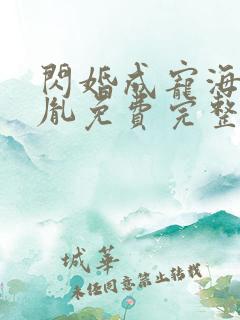 閃婚成寵海
胤免費完整
城華
未经同意禁止转载